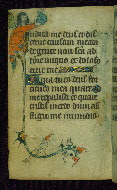 Iudica me deus et dis
cerne causam meam
de gente non sancta ab
homine iniquo et doloso
erue me
Quia tu es deus for
titudo mea quare
me reppulisti et quare
tristis incedo dum af
fligit me inimicus